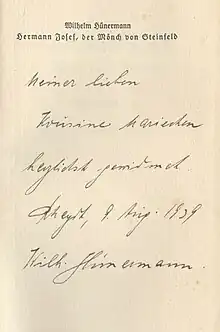 Wilhelm Hünermann
Hermann Josef, der Mönch von Steinfeld
Meiner lieben
Kousine Mariechen
herzlichst gewidmet.
Rheydt, 9. Aug. 1939
Wilh. Hünermann.